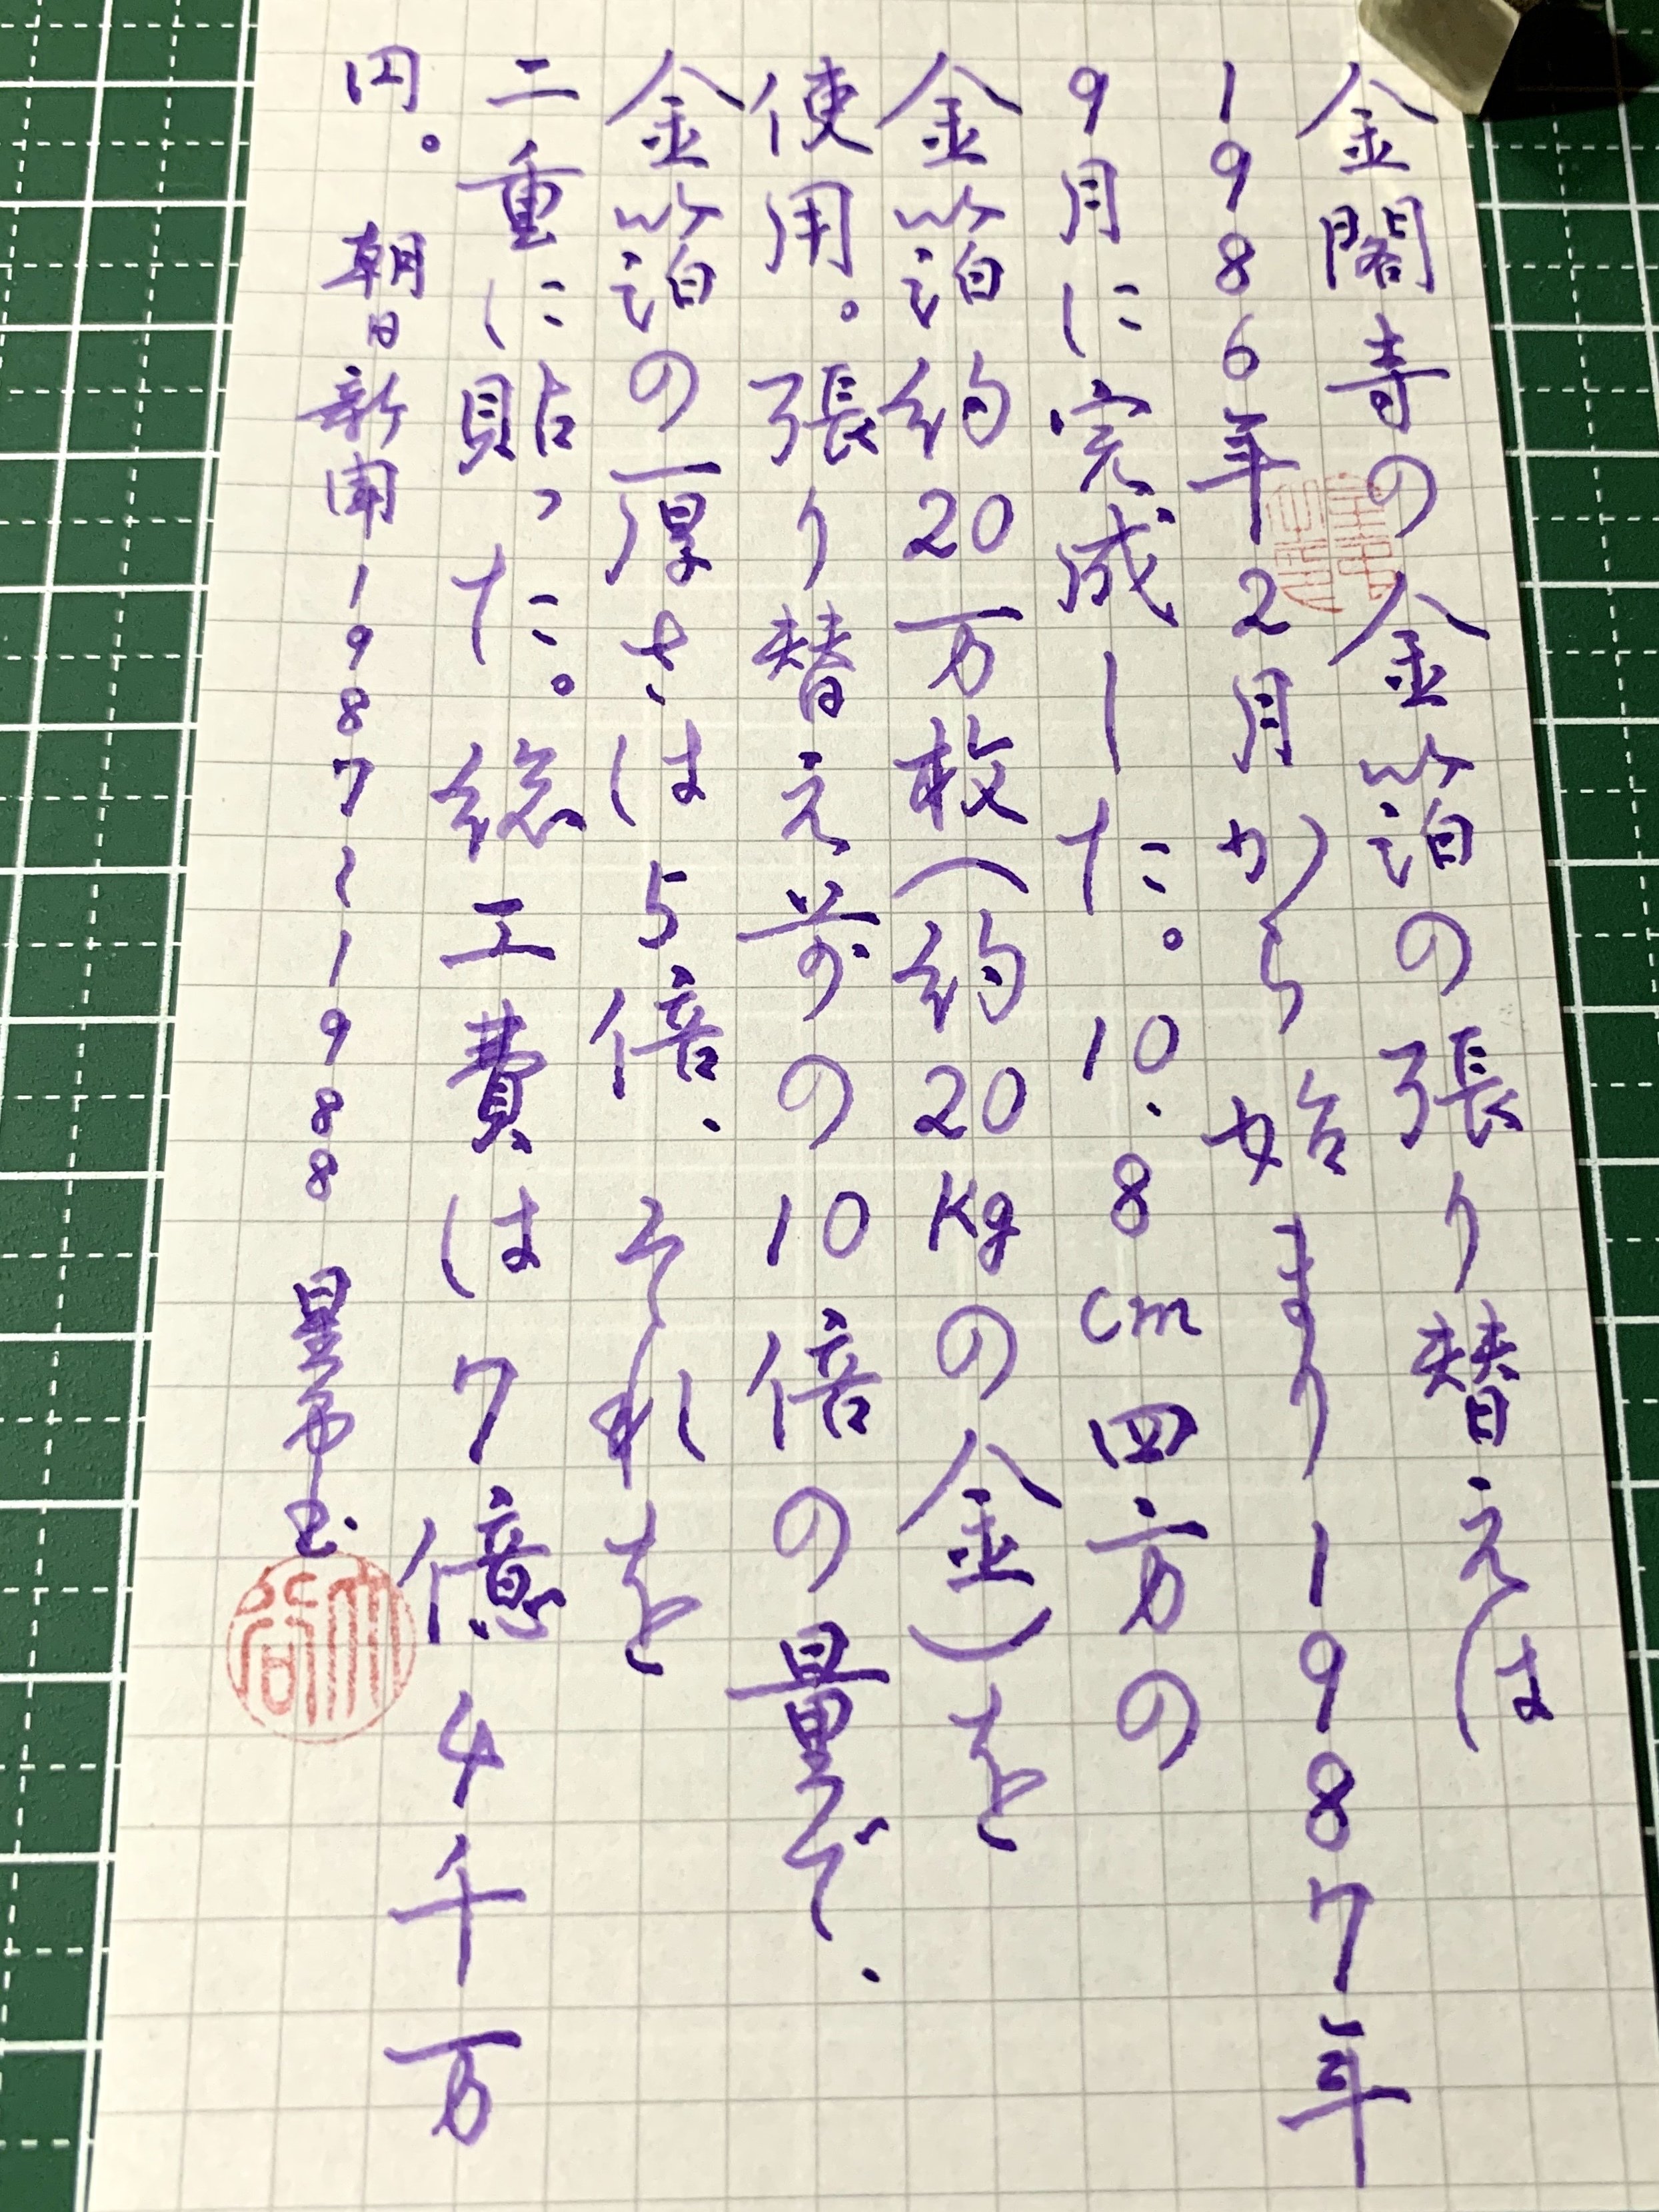 金閣寺の金箔の張り替えは
1986年2月から始まり1987年
9月に完成した。10.8cm四方の
金箔約20万枚(約20Kgの金)を
使用。張り替え前の10倍の量で、
金箔の厚さは5倍、それを
二重に貼った。総工費は7億4千万
円。 朝日新聞1987〜1988